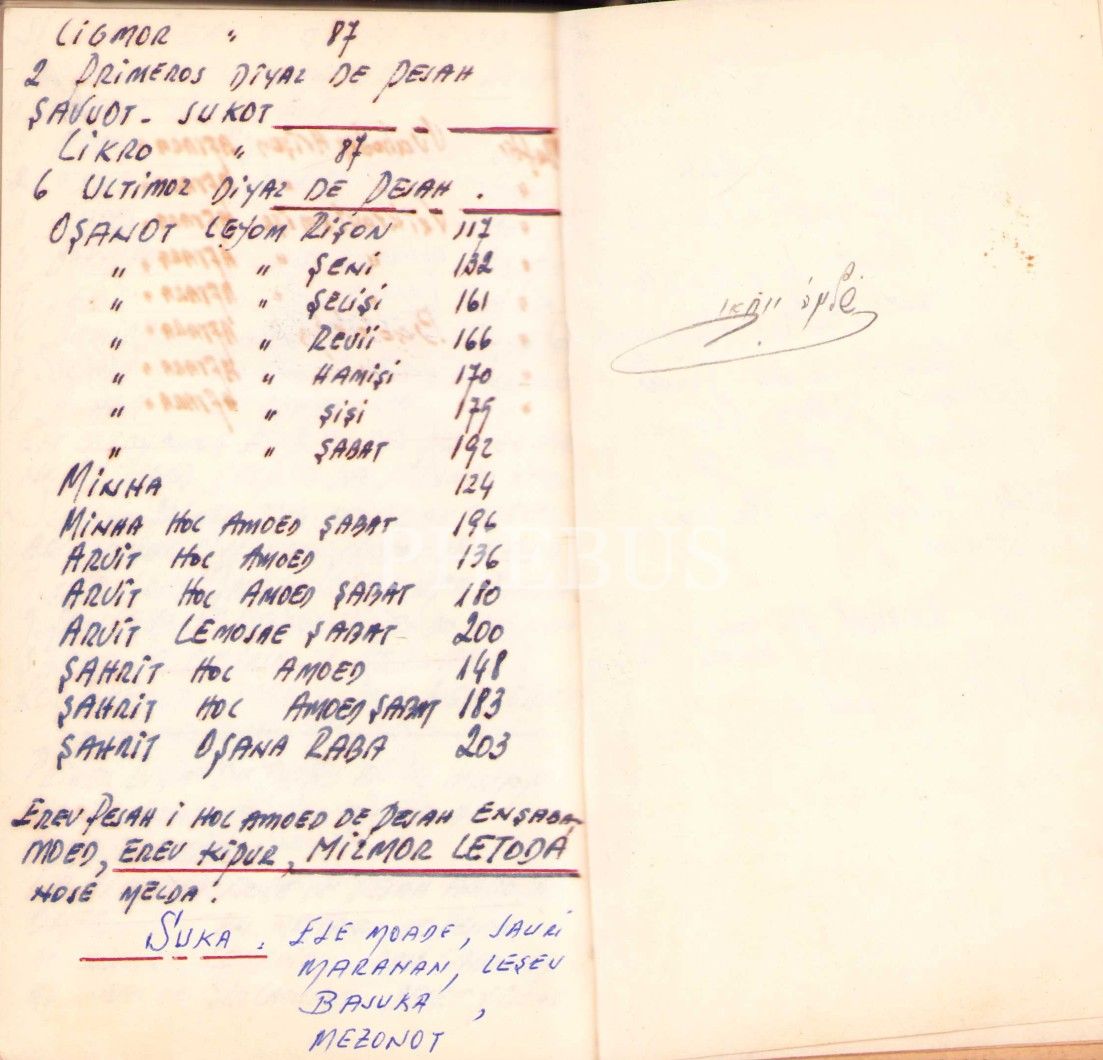 LİGMOR " 87
2 PRİMEROS DİYAZ DE PESAH
ŞAVUOT - SUKOT
LİKRO " 87
6 ULTİMOZ DİYAZ DE PESAH.
OŞANOT LEYOM RİŞON 117
" " ŞENİ 132
" " ŞELİŞİ 161
" " REVİİ 166
" " HAMİŞİ 170
" " ŞİŞİ 175
" " ŞABAT 192
MİNHA 124
MİNHA HOL AMOED ŞABAT 196
ARVİT HOL AMOED 136
ARVİT HOL AMOED ŞABAT 180
ARVİT LEMOSAE ŞABAT 200
ŞAHRİT HOL AMOED 148
ŞAHRİT HOL AMOED ŞABAT 183
ŞAHRİT OŞANA RABA 203
EREV PESAH İ HOL AMOED DE PESAH
MOED, EREV KİPUR, MİZMOR LETODA
NOSE MELDA!
SUKA: ELE MOADE, SAVRİ
MARANAN, LEŞEV
BASUKA,
MEZONOT
PHEBUS